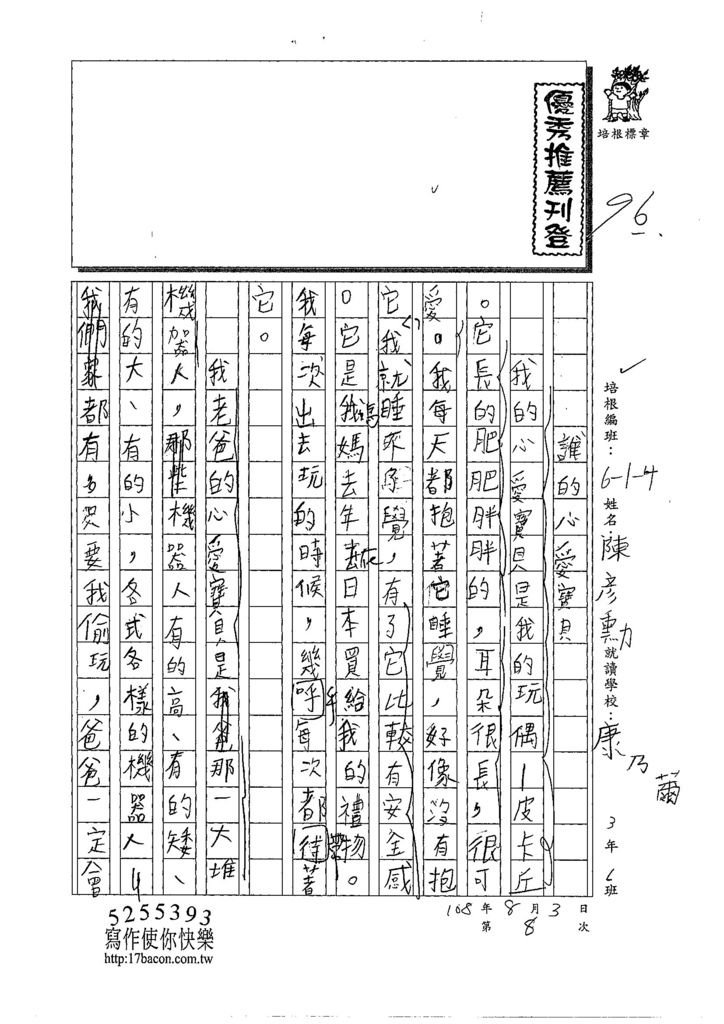 優秀推薦刊登
培根標章
96
培根編班：6-1-4 姓名：陳彥勳 就讀學校：康乃薾 3年6班
108年8月3日
第8次
誰的心愛寶貝
我的心愛寶貝是我的玩偶—皮卡丘
。它長的肥肥胖胖的，耳朵很長，很可
愛。我每天都抱著它睡覺，好像沒有抱
它我就睡不覺，有了它比較有安全感
。它是我媽媽去年去日本買給我的禮物。
我每次出去玩的時候，幾乎每次都帶著
它。
我老爸的心愛寶貝是我爸那一大堆
機器人，那些機器人有的高、有的矮、
有的大、有的小，各式各樣的機器人
我們家都有。如果我偷玩，爸爸一定會
5255393
寫作使你快樂
http:17bacon.com.tw